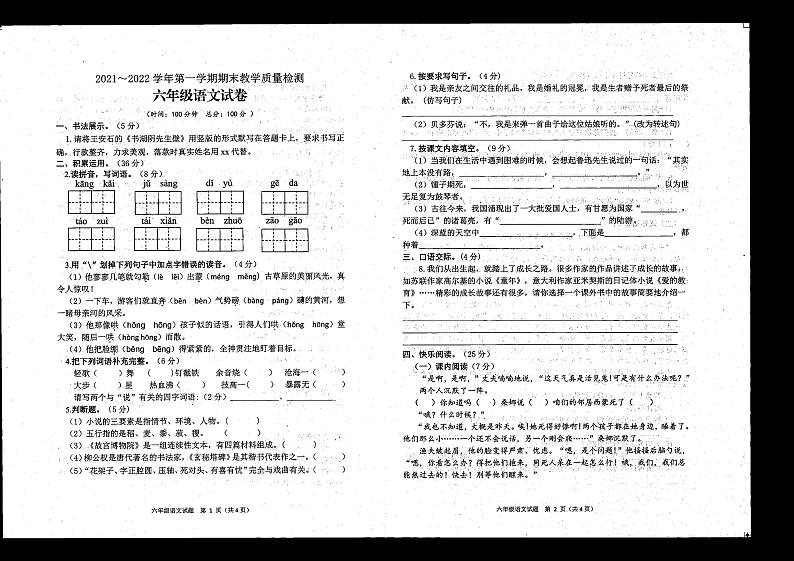 2021～2022 学年第一学期期末教学质量检测
六年级语文试卷
（时间：100 分钟　总分：100 分）
一、书法展示。（5 分）
1. 请将王安石的《书湖阴先生壁》用竖版的形式默写在答题卡上，要求书写正
确，行款整齐，力求美观，落款时真实姓名用 xx 代替。
二、积累运用。（36 分）
2.读拼音，写词语。（8 分）
kāng kǎi　jǔ sàng　dī yù　gē da
táo zuì　tái xiǎn　bèn zhuō　zāo gāo
3.用“\”划掉下列句子中加点字错误的读音。（4 分）
（1）他寥寥几笔就勾勒（lè lēi）出蒙（méng měng）古草原的美丽风光，真
令人惊叹！
（2）一下车，游客们就直奔（bēn bèn）气势磅（bàng páng）礴的黄河，想
一睹母亲河的风采。
（3）他那像哄（hōng hǒng）孩子似的话语，引得人们哄（hǒng hōng）堂
大笑，随后一哄（hòng hōng）而散。
（4）他把脸绷（běng bēng）得紧紧的，全神贯注地盯着目标。
4.把下列词语补充完整。（6 分）
轻歌（　）舞　（　）钉截铁　余音绕（　）　沧海一（　）
大步（　）星　热血沸（　）　技高一（　）　暴露无（　）
请写两个与“说”有关的四字词语：（2 分）____________、____________
5.判断题。（5 分）
（1）小说的三要素是指情节、环境、人物。（　）
（2）五行指的是稻、麦、黍、菽、稷。（　）
（3）《故宫博物院》是一组连续性文本，有四篇材料组成。（　）
（4）柳公权是唐代著名的书法家，《玄秘塔碑》是其楷书代表作之一。（　）
（5）“花架子、字正腔圆、压轴、死对头、有喜有忧”完全与戏曲有关。（　）
六年级语文试题　第 1 页（共 4 页）
6.按要求写句子。（4 分）
（1）我是亲友之间交往的礼品，我是婚礼的冠冕，我是生者赠予死者最后的祭
献。（仿写句子）
（2）贝多芬说：“不，我是来弹一首曲子给这位姑娘听的。”（改为转述句）
7.按课文内容填空。（9 分）
（1）当我们在生活中遇到困难的时候，会想起鲁迅先生说过的一句话：“其实
地上本没有路，____________，____________。”
（2）锺子期死，____________，____________，以为世
无足复为鼓琴者。
（3）古往今来，我国涌现出了一大批爱国人士，有甘愿为国家“________，
死而后已”的诸葛亮，有“____________”的陆游。
（4）深蓝的天空中____________，下面是____________，都
种着____________。
三、口语交际。（4 分）
8.我们从出生起，就踏上了成长之路。很多作家的作品讲述了成长的故事，
如苏联作家高尔基的小说《童年》，意大利作家亚米契斯的日记体小说《爱的教
育》……精彩的成长故事还有很多，请你选择一个课外书中的故事简要地介绍一
下。
四、快乐阅读。（25 分）
（一）课内阅读（7 分）
“是啊，是啊，”丈夫喃喃地说，“这天气真是活见鬼！可是有什么办法呢？”
两个人沉默了一阵。
（　）你知道吗（　）桑娜说（　）咱们的邻居西蒙死了（　）
“哦？什么时候？”
“我也不知道，大概是昨天。唉！她死得好惨啊！两个孩子都在她身边，睡着了。
他们那么小………一个还不会说话，另一个刚会爬……”桑娜沉默了。
渔夫皱起眉，他的脸变得严肃、忧虑。“嗯，是个问题！”他搔搔后脑勺说，
“嗯，你看怎么办？得把他们抱来，同死人呆在一起怎么行！哦，我们，我们总
能熬过去的！快去！别等他们醒来。”
六年级语文试题　第 2 页（共 4 页）